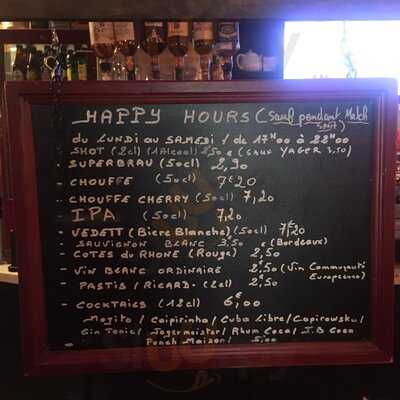 HAPPY HOURS (Sauf pendant Match
Sport)
du LUNDI au SAMEDI / de 17H00 à 22H00
- SHOT (2cl) (1 Alcool) 2,50 € (SAUF YAGER 3,50)
- SUPERBRAU (50cl) 2,90
- CHOUFFE (50cl) 7€20
- CHOUFFE CHERRY (50cl) 7,20
- IPA (50cl) 7,20
- VEDETT (Bière Blanche) (50cl) 7€20
- SAUVIGNON BLANC 3.50 € (Bordeaux)
- COTES du RHONE (Rouge) 2,50
- VIN BLANC ORDINAIRE 2,50 (Vin Communauté
Européenne)
- PASTIS / RICARD. (2cl) 2,50
- COCKTAILS (12cl) 6€00
Mojito / Caipirinha / Cuba Libre / Capirowska /
Gin Tonic / Jagermeister / Rhum Coca / J.B Coca
Punch Maison / 5,00